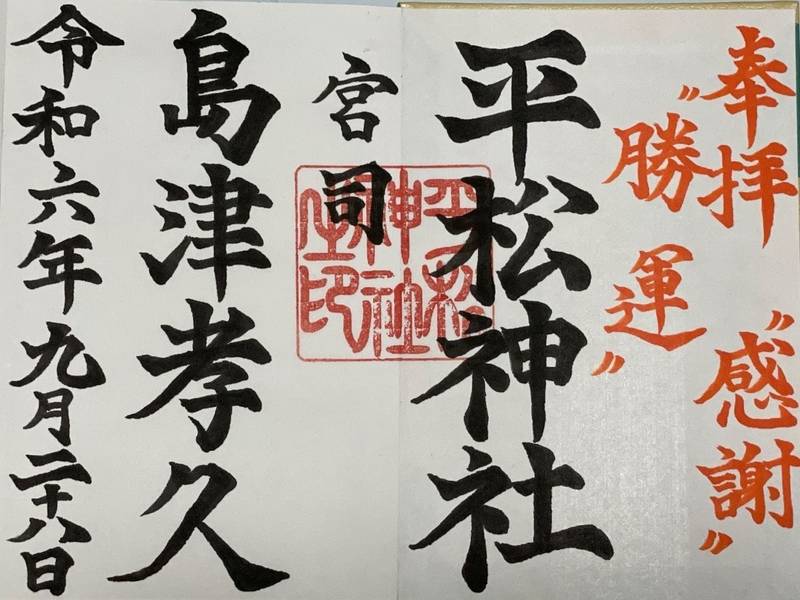 奉拝
〝感謝〟
〝勝運〟
平松神社
宮司
島津孝久
令和六年九月二十八日